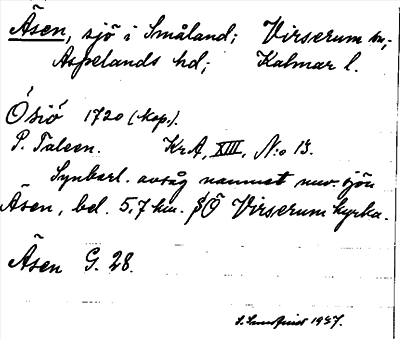 Åsen, sjö i Småland; Virserum sn;
Aspelands hd; Kalmar l.
Ösiö 1720 (kop.).
P. Taleen. KrA, XIII, N:o 13.
Synbarl. avsåg namnet nuv. sjön
Åsen, bel. 5,7 km. SÖ Virserum kyrka.
Åsen G. 28.
1937.